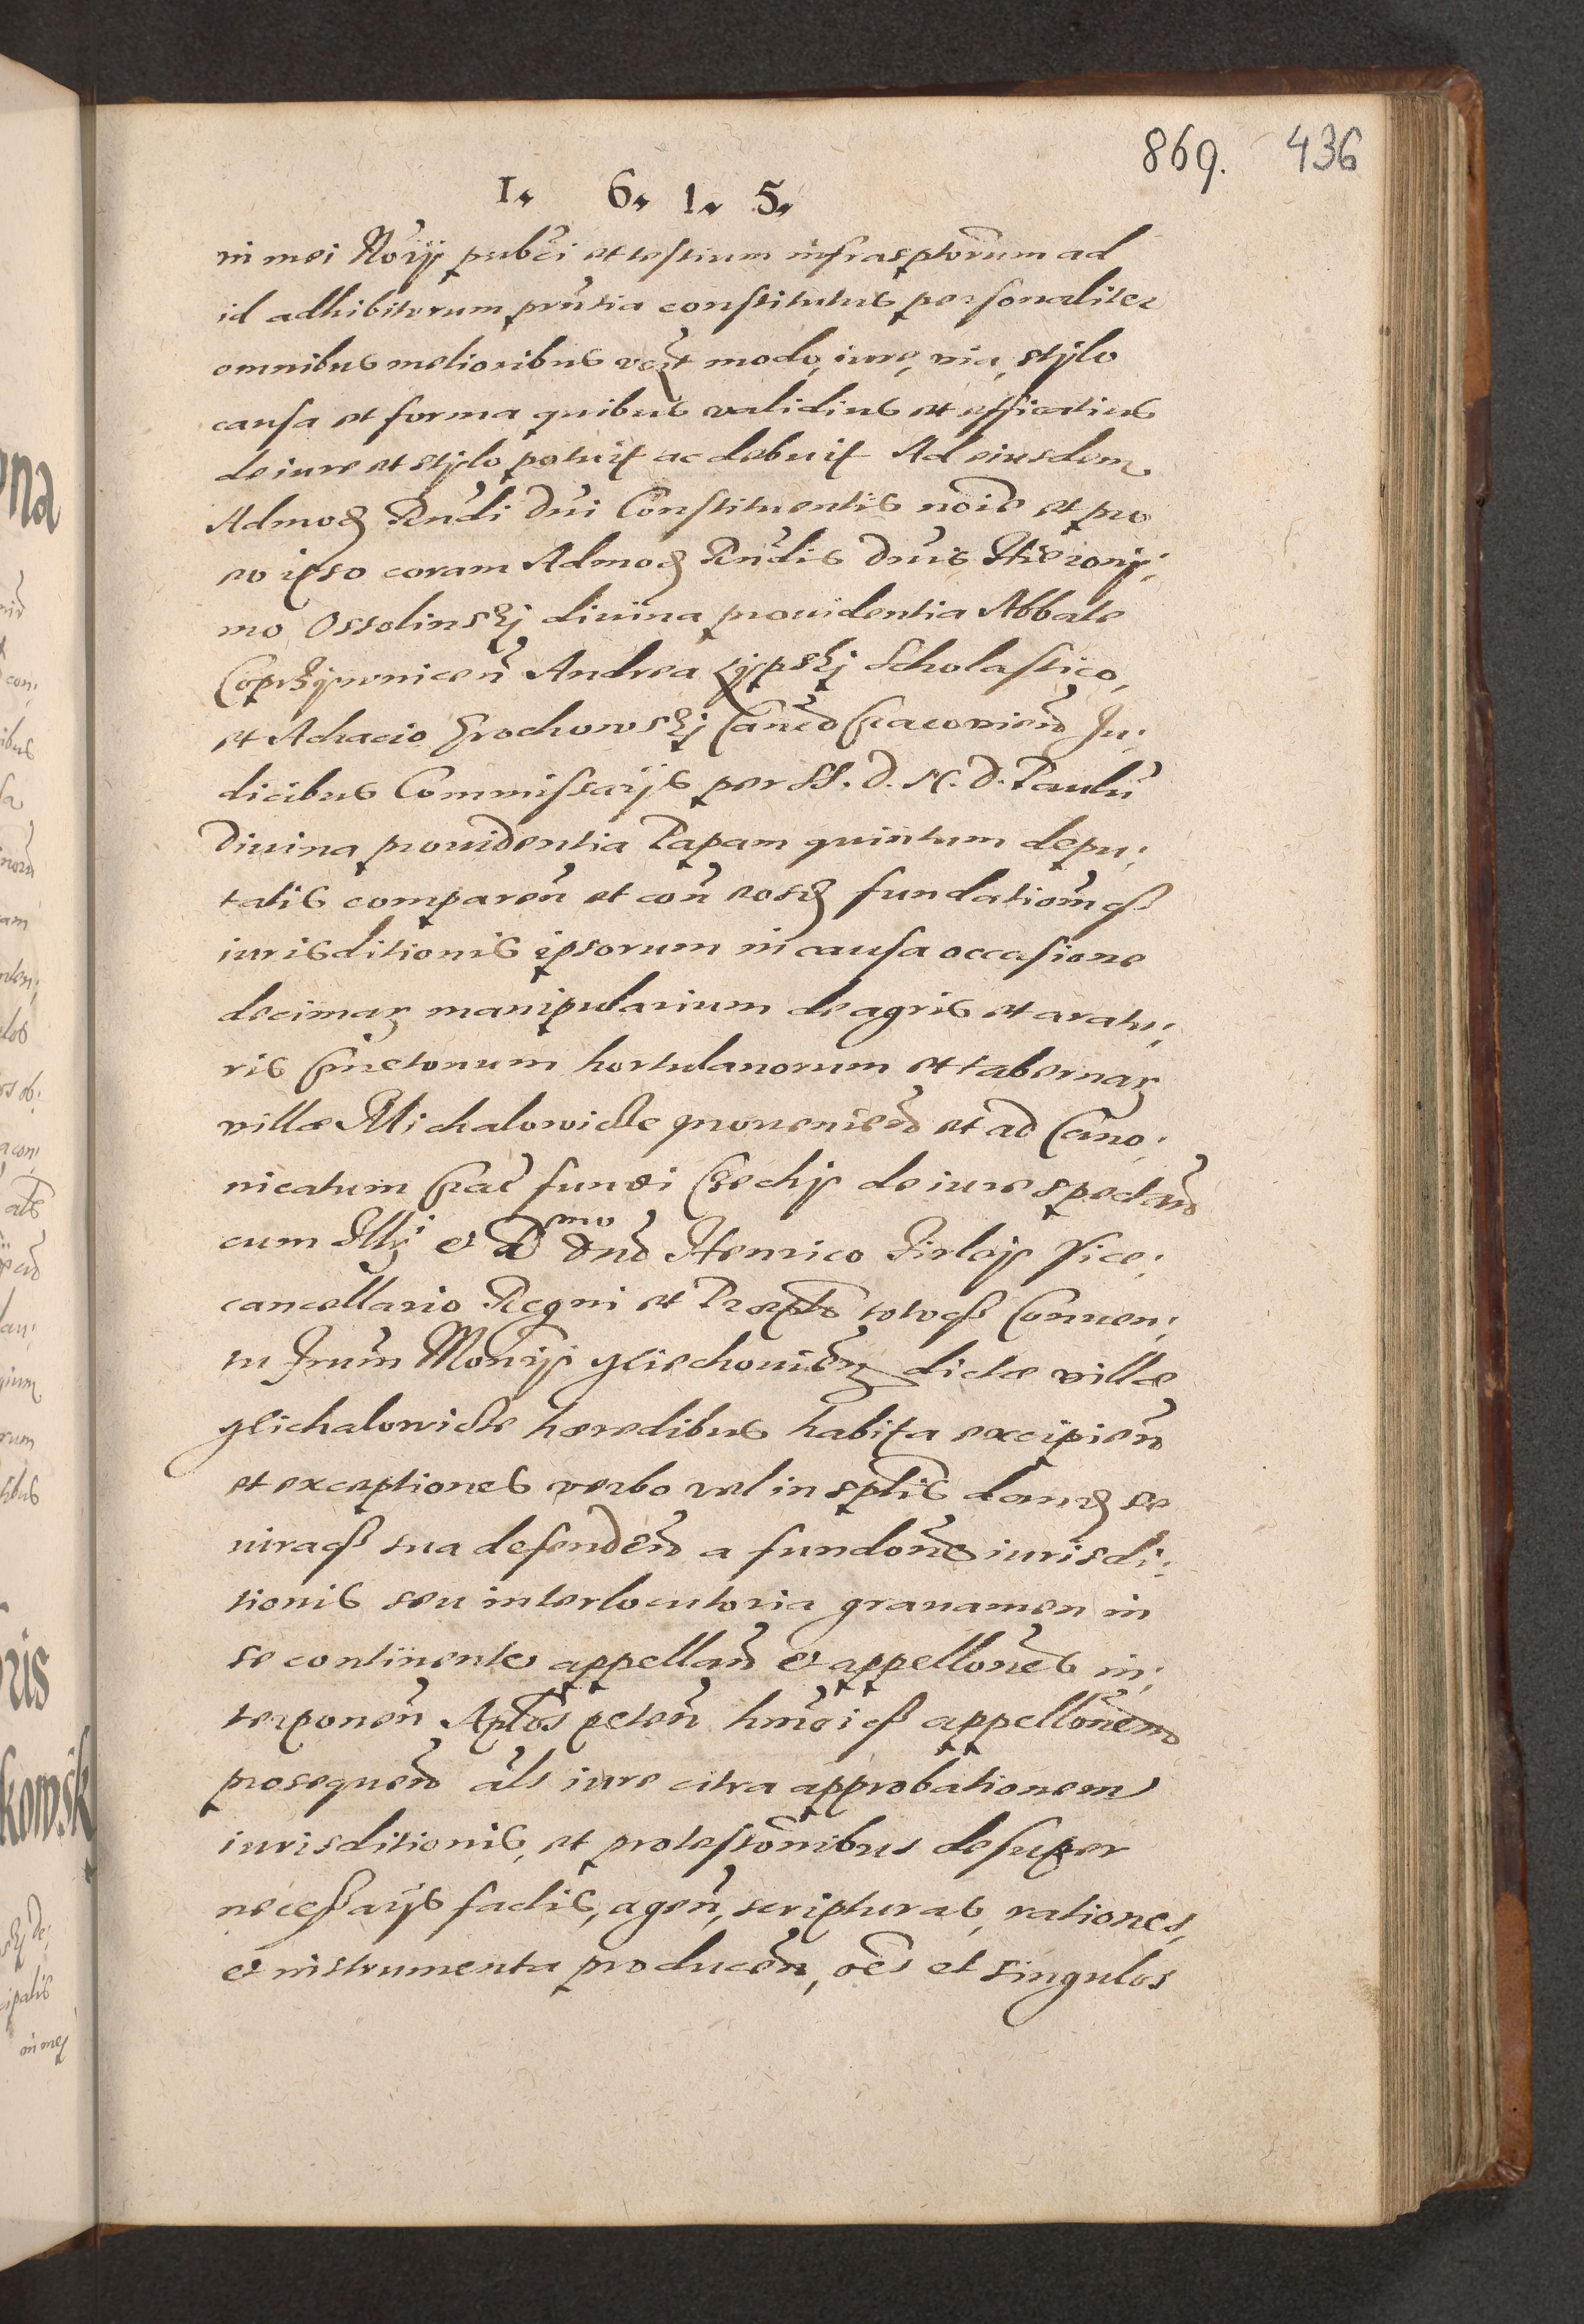 869. 436
1. 6. 1. 5.
in mei Nō̄rij pub̄ci et testium infrasp̄torum ad
id adhibitorum pn̄tia constitutus personaliter
omnibus melioribus modo, iure, via, stylo
causa et forma quibus validius et efficatius
de iure et stylo potuit ac debuit Ad eiusdem
Admoȝ Rn̄di Dn̄i Constituentis nōie et pro
eo ipso coram Admoȝ Rn̄dis Dn̄is Hierony:
mo Ossolinskj diuina prouidentia Abbate
Coprzywnicen̄ Andrea Lypskj Scholastico,
et Achacio Grochowskj Can̄co Cracouien̄ Ju:
dicibus Commissarijs per SS. D. N. D. Paulū
Diuina prouidentia Papam quintum depu:
tatis comparen̄ et con̄ eosȝ fundationemqȝ
iurisditionis ipsorum in causa occasione
decimaȝ manipularium de agris et aratu:
ris Cmetonum hortulanorum et tabernaȝ
villæ Michalowicze prouenien̄ et ad Cano:
nicatum Crac̄ fundi Czechy de iure spectan̄
cum Illj et R mo Dn̄o Henrico Firley Vice:
cancellario Regni et Præpto totoqȝ Conuen:
tu Frūm Monrij Miechouien̄ dictæ villæ
Michalowicze hæredibus habita excipien̄
et exceptiones verbo vel in sp̄tis danȝ se
iuraqȝ sua defenden̄ a fundōne iurisdi:
tionis seu interlocutoria grauamen in
se continente appellan̄ et appellōnes in:
terponen̄ Aplōs peten̄ hmōiqȝ appellōnem
prosequen̄ als iure citra approbationem
iurisditionis, et protestōnibus desuper
necessarijs factis, agen̄, scripturas, rationes,
et instrumenta producen̄, oēs et singulos